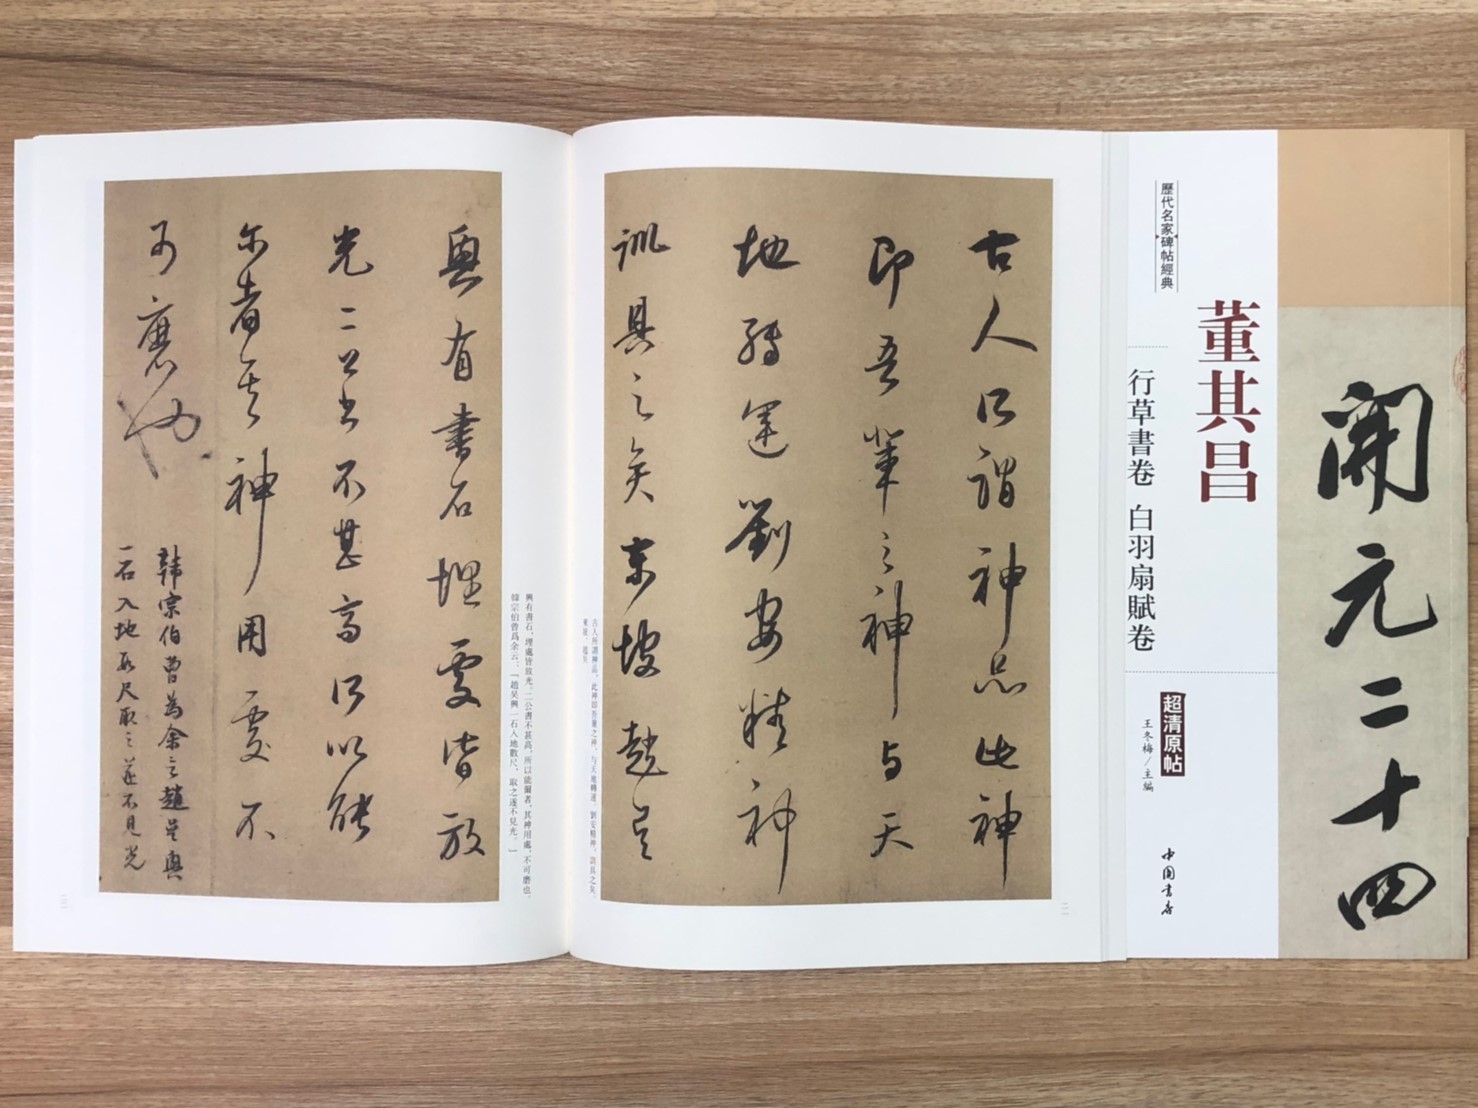 開元二十四
董其昌
歷代名家碑帖經典
行草書卷 白羽扇賦卷
超清原帖
王冬梅／主編
中國書店
古人所謂神品此神
即吾輩之神与天
地轉運劉安精神
訓具之矣東坡趙吴
古人所謂神品，此神即吾輩之神，与天地轉運，劉安精神，訓具之矣。
東坡、趙吴
興有書石，埋處皆放光。二公書不甚高，所以能爾者，其神用處，不可磨也。
韓宗伯曾爲余云：「趙吴興一石入地數尺，取之遂不見光。」
興有書石埋處皆放
光二公書不甚高所以能
尔者其神用處不
可磨也
韓宗伯曾為余言趙吴興
一石入地數尺取之遂不見光